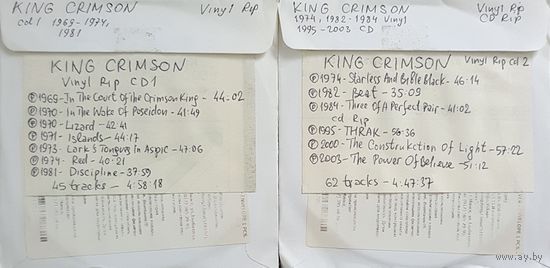 KING CRIMSON Vinyl Rip
cd1 1969-1974,
1981
KING CRIMSON
Vinyl Rip CD1
℗1969-In The Court Of The Crimson King - 44:02
℗1970-In The Wake Of Poseidon - 41:49
℗1970-Lizard - 42:41
℗1971-Islands - 44:17
℗1973-Lark's Tongues In Aspic - 47:06
℗1974-Red - 40:21
℗1981-Discipline - 37:59
45 tracks - 4:58:18
KING CRIMSON Vinyl Rip
1974, 1982-1984 Vinyl CD Rip
1995-2003 CD
KING CRIMSON Vinyl Rip cd 2
℗1974-Starless And Bible Black - 46:14
℗1982-Beat - 35:09
℗1984-Three Of A Perfect Pair - 41:02
cd Rip
℗1995-THRAK - 56:36
℗2000-The Construkction Of Light - 57:22
℗2003-The Power Of Believe - 51:12
62 tracks - 4:47:37
www.ay.by